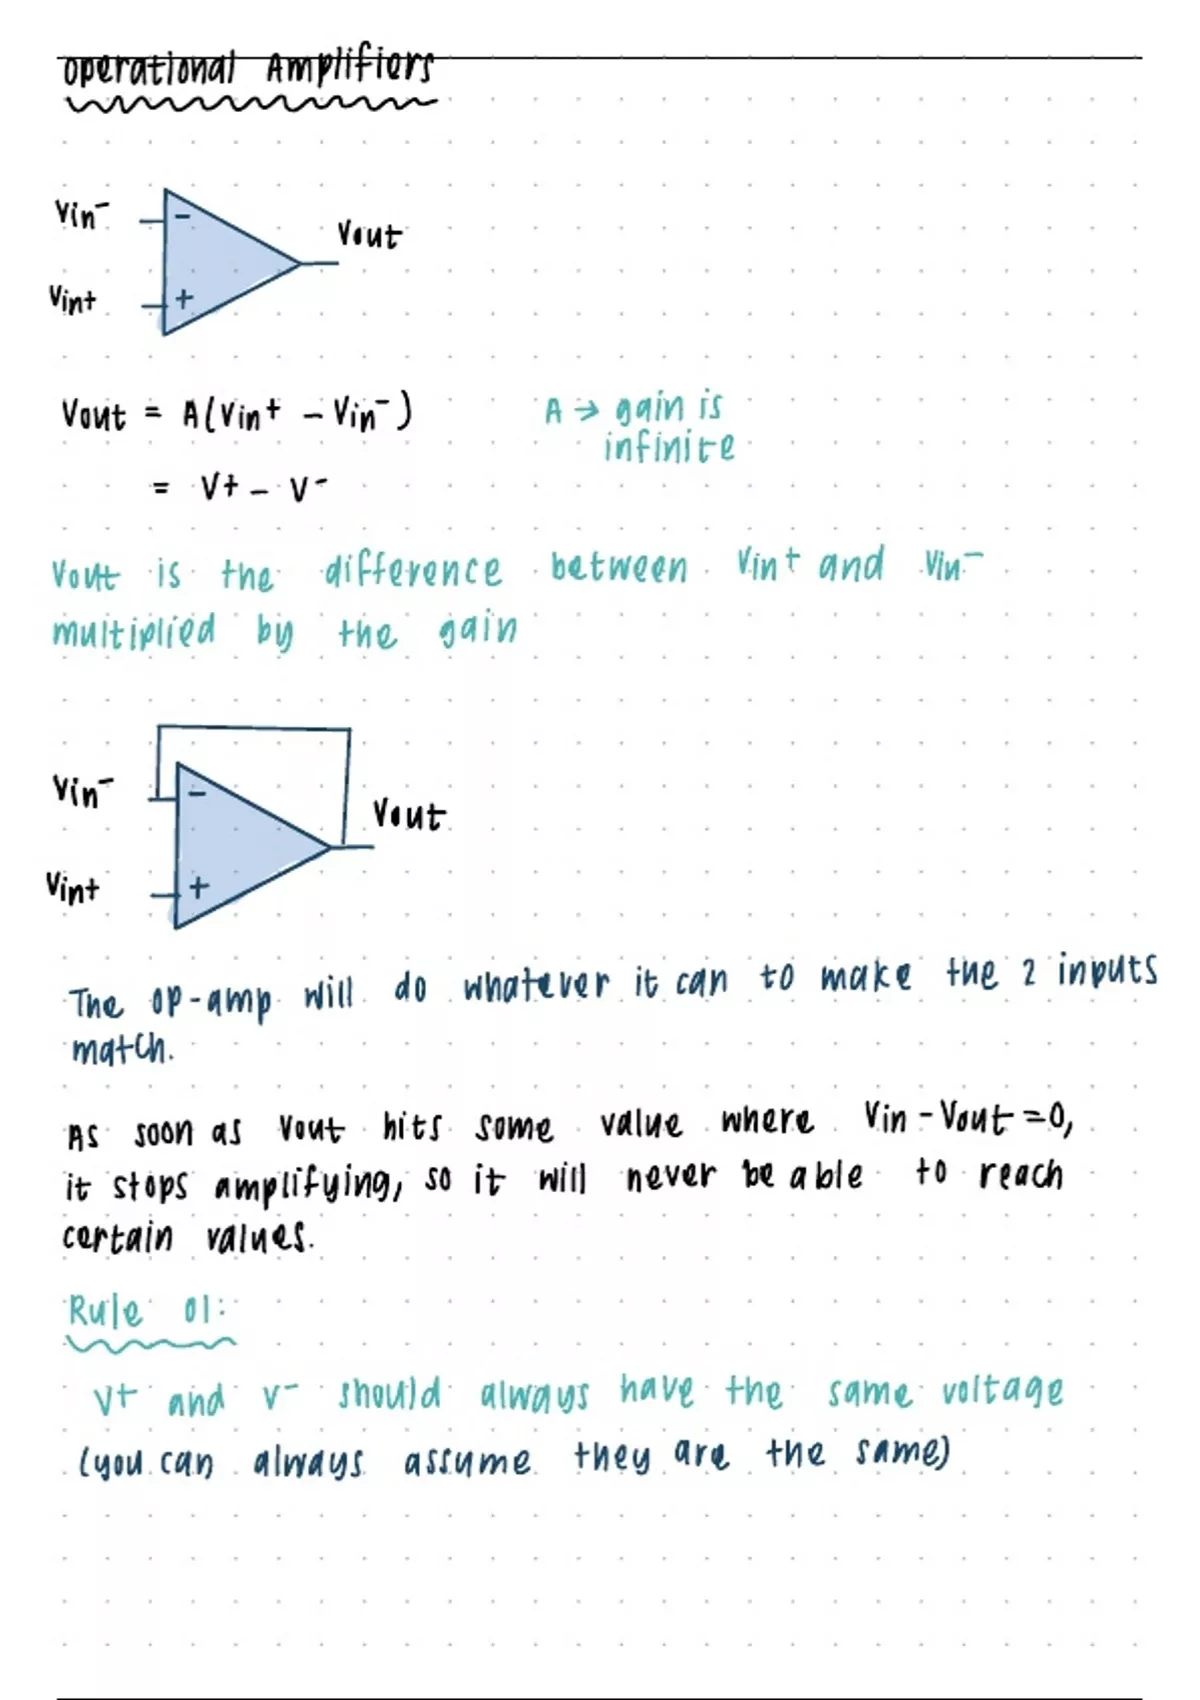 Operational Amplifiers
Vin⁻
-
Vout
Vin+
+
Vout = A(Vin⁺ - Vin⁻)
A → gain is
infinite
= V⁺ - V⁻
Vout is the difference between Vin⁺ and Vin⁻
multiplied by the gain
Vin⁻
-
Vout
Vin+
+
The op-amp will do whatever it can to make the 2 inputs
match.
As soon as Vout hits some value where Vin - Vout = 0,
it stops amplifying, so it will never be able to reach
certain values.
Rule 01:
V⁺ and V⁻ should always have the same voltage
(you can always assume they are the same)